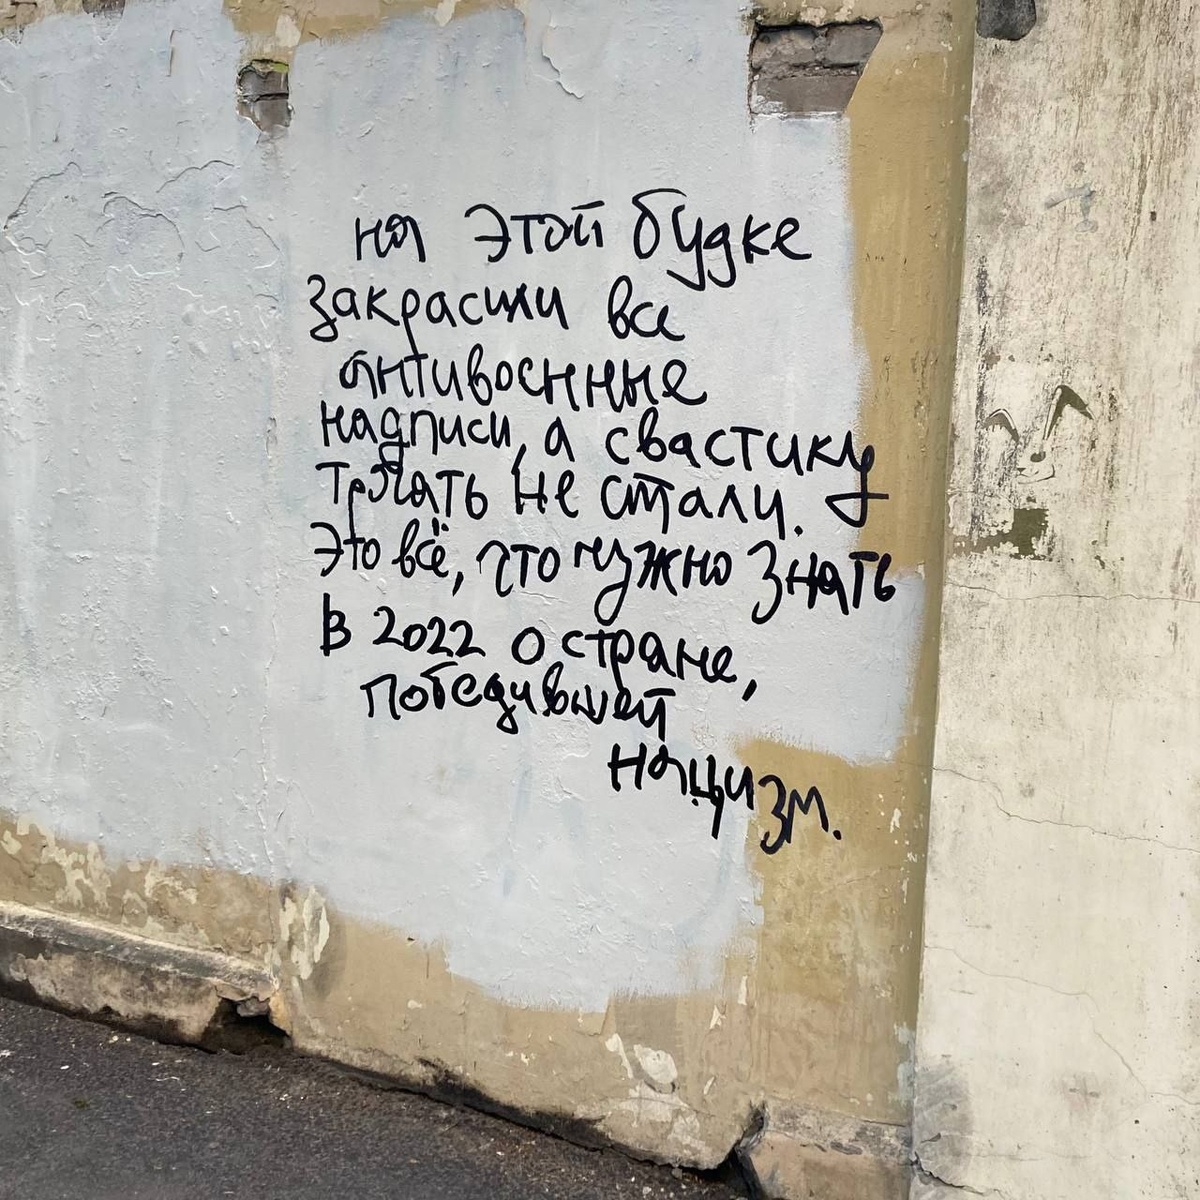 на этой будке
закрасили все
антивоенные
надписи, а свастику
трогать не стали.
Это всё, что нужно знать
в 2022 о стране,
победившей
нацизм.